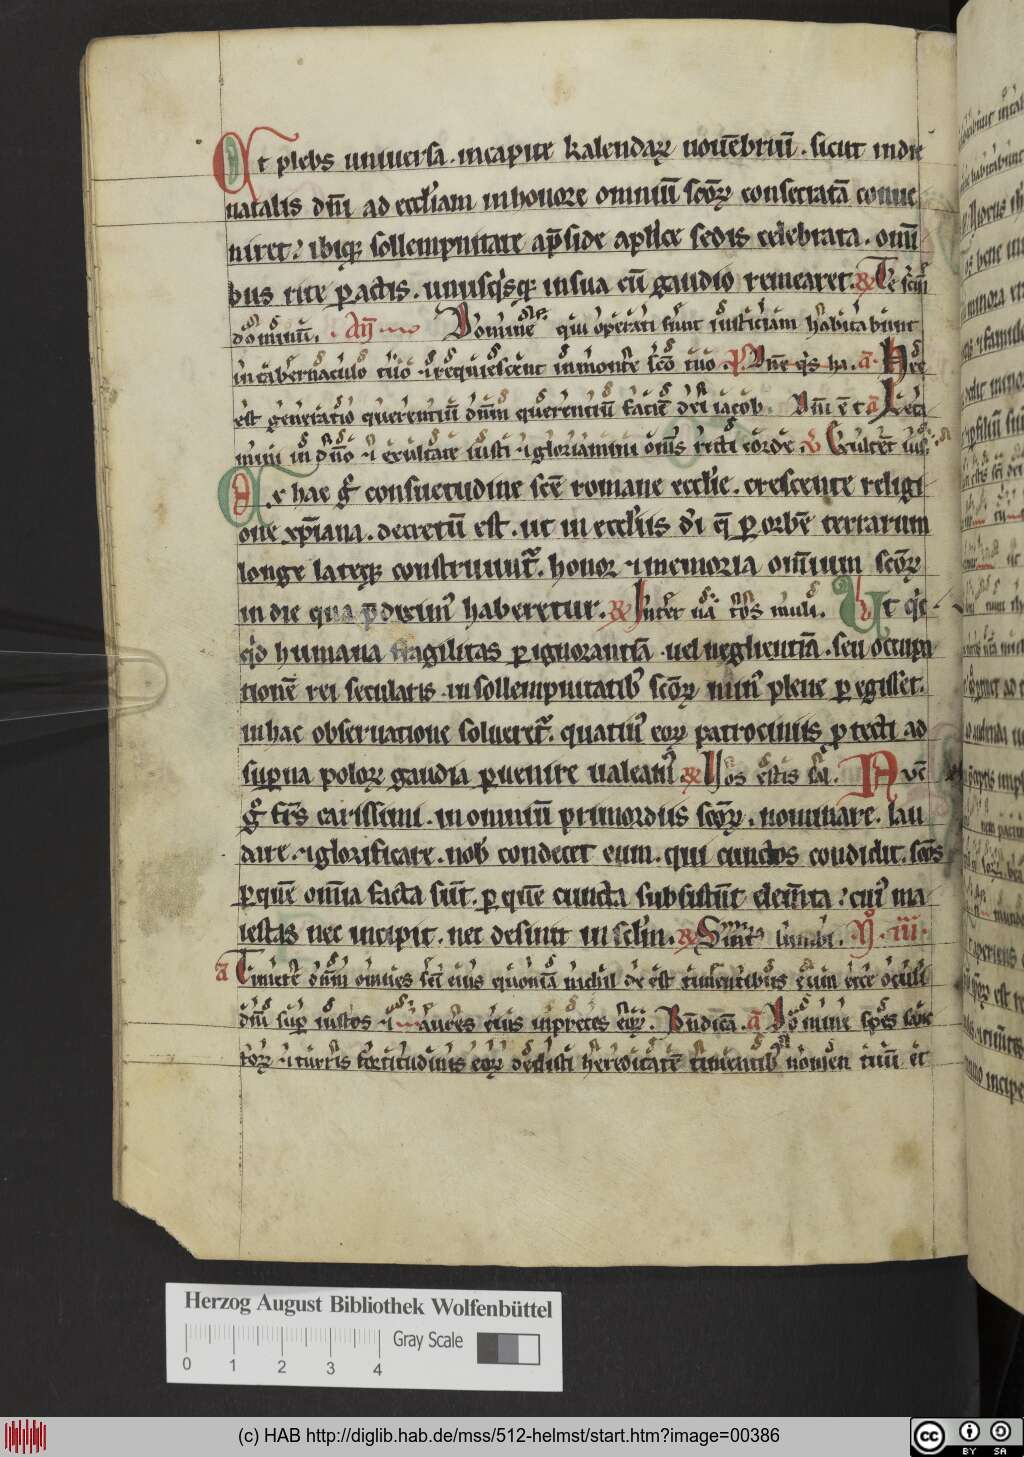 Ut plebs universa. in capite kalendaꝝ novēbriū. sicut in die
natalis dn̄i ad eccl̓iam in honore omniū scōꝝ consecratā conue
niret. ibiqꝫ sollempnitate ap̄side apl̓ice sedis celebrata. om̄i
bus rite ꝑactis. unusq̓sqꝫ in sua cū gaudio remearet. Te sc̄m
dominū. Añ Domine qui operati sunt iusticiam habitabunt
in tabernaculo tuo ⁊ requiescent in monte sc̄o tuo. P̄. Dn̄e q̓s ha. a Hec
est generatio querentiū dn̄m querentiū faciē dei iacob. Dn̄i ē t a Leta
mini in dn̄o ⁊ exultate iusti ⁊ gloriamini om̄s recti corde. V Exultēt ius
Ex hac ḡ consuetudine scē romane eccl̓ie. crescente religi
one xp̄iana. decretū est. ut in eccl̓iis d̓i q̄ ꝑ orbē terrarum
longe lateqꝫ construunt̃. honor ⁊ memoria om̄ium scōꝝ
in die qua p̄diximꝰ haberetur. Inter nā tos muli. Ut q̓c
q̓d humana fragilitas ꝑ ignorantiā. vel negligentiā. seu occupa
tionē rei secularis. in sollempnitatibꝰ scōꝝ minꝰ plene ꝑegisset.
in hac observatione solveret̃. quatinꝰ eoꝝ patrociniis ꝓtecti ad
suꝑna poloꝝ gaudia ꝑvenire valeamꝰ. Vos estis sal. Nūc
ḡ frēs carissimi. in omniū primordiis scōꝝ. nominare. lau
dare. ⁊ glorificare. nob̄ condecet eum. qui cunctos condidit. scōs
ꝑ quē om̄ia facta sūt. ꝑ quē cuncta subsistūt elem̄ta. cuiꝰ ma
iestas nec incipit. nec desinit in scl̓m. Sint lumbi. ꝶ. iii.
a Timete dn̄m omnes scī eius quoniā nichil de est timentibus eum ecce oculi
dn̄i suꝑ iustos ⁊ aures eius in preces eoꝝ. Bn̄dicā. a Domine spes scōr
toꝝ ⁊ turris fortitudinis eoꝝ dedisti hereditatē timentibꝰ nomen tuū et
Herzog August Bibliothek Wolfenbüttel
Gray Scale
0 1 2 3 4
(c) HAB http://diglib.hab.de/mss/512-helmst/start.htm?image=00386
cc BY SA